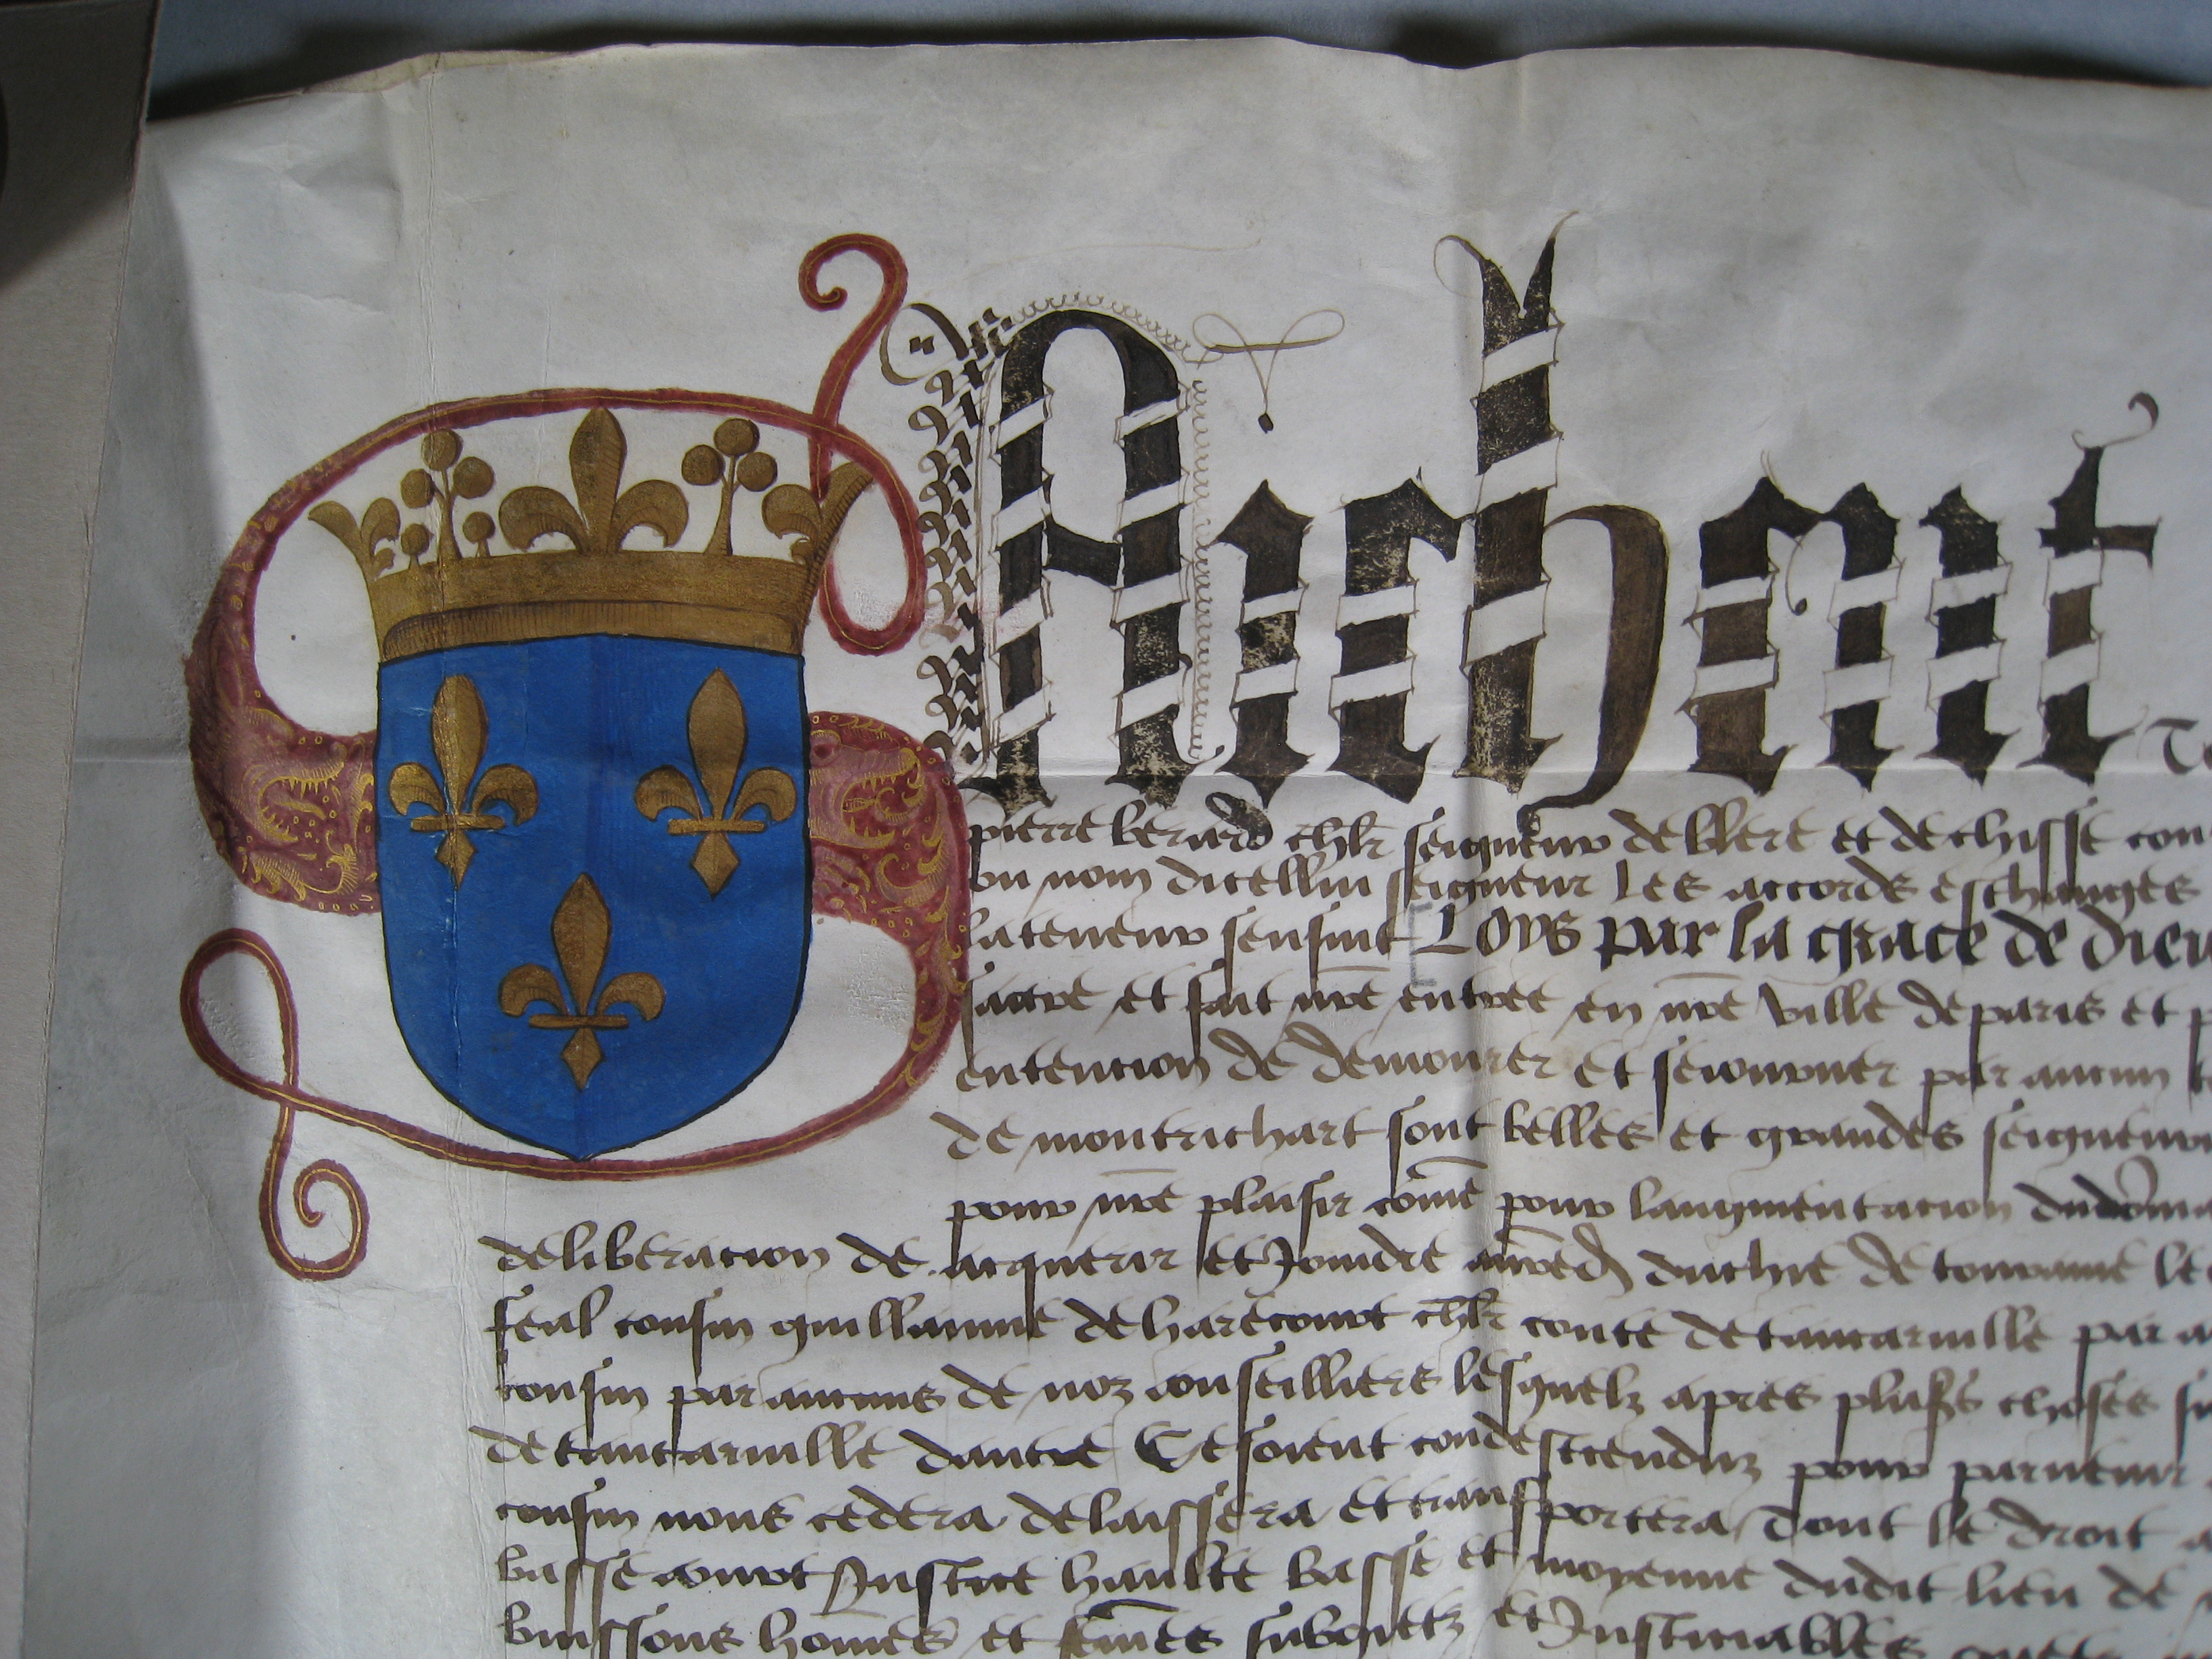 SAichent to
pierre berard chlr seigneur de blere et de chisse con
du nom dicellui seigneur les accords eschanges
la teneur sensuit Loys par la grace de dieu
sacre et fait nre entree en nre ville de paris et p
entencion de demourer et seiourner par aucun
de montrichart sont belles et grandes seigneur
pour nre plaisir come pour laugmentacion
deliberacion de acquerir et Joindre duchie de touraine le
feal cousin guillaume de harecourt chlr conte de tancaruille par a
cousin par aucuns de noz conseilliers lesquelz apres plus's choses
de tancaruille dautre Se soient condescenduz pour paruenir
cousin nous cedera delaissera et transportera dont le droit a
basse court Justice haulte basse et moyenne dudit lieu de
buissons homes et femes subgetz et Justiciables